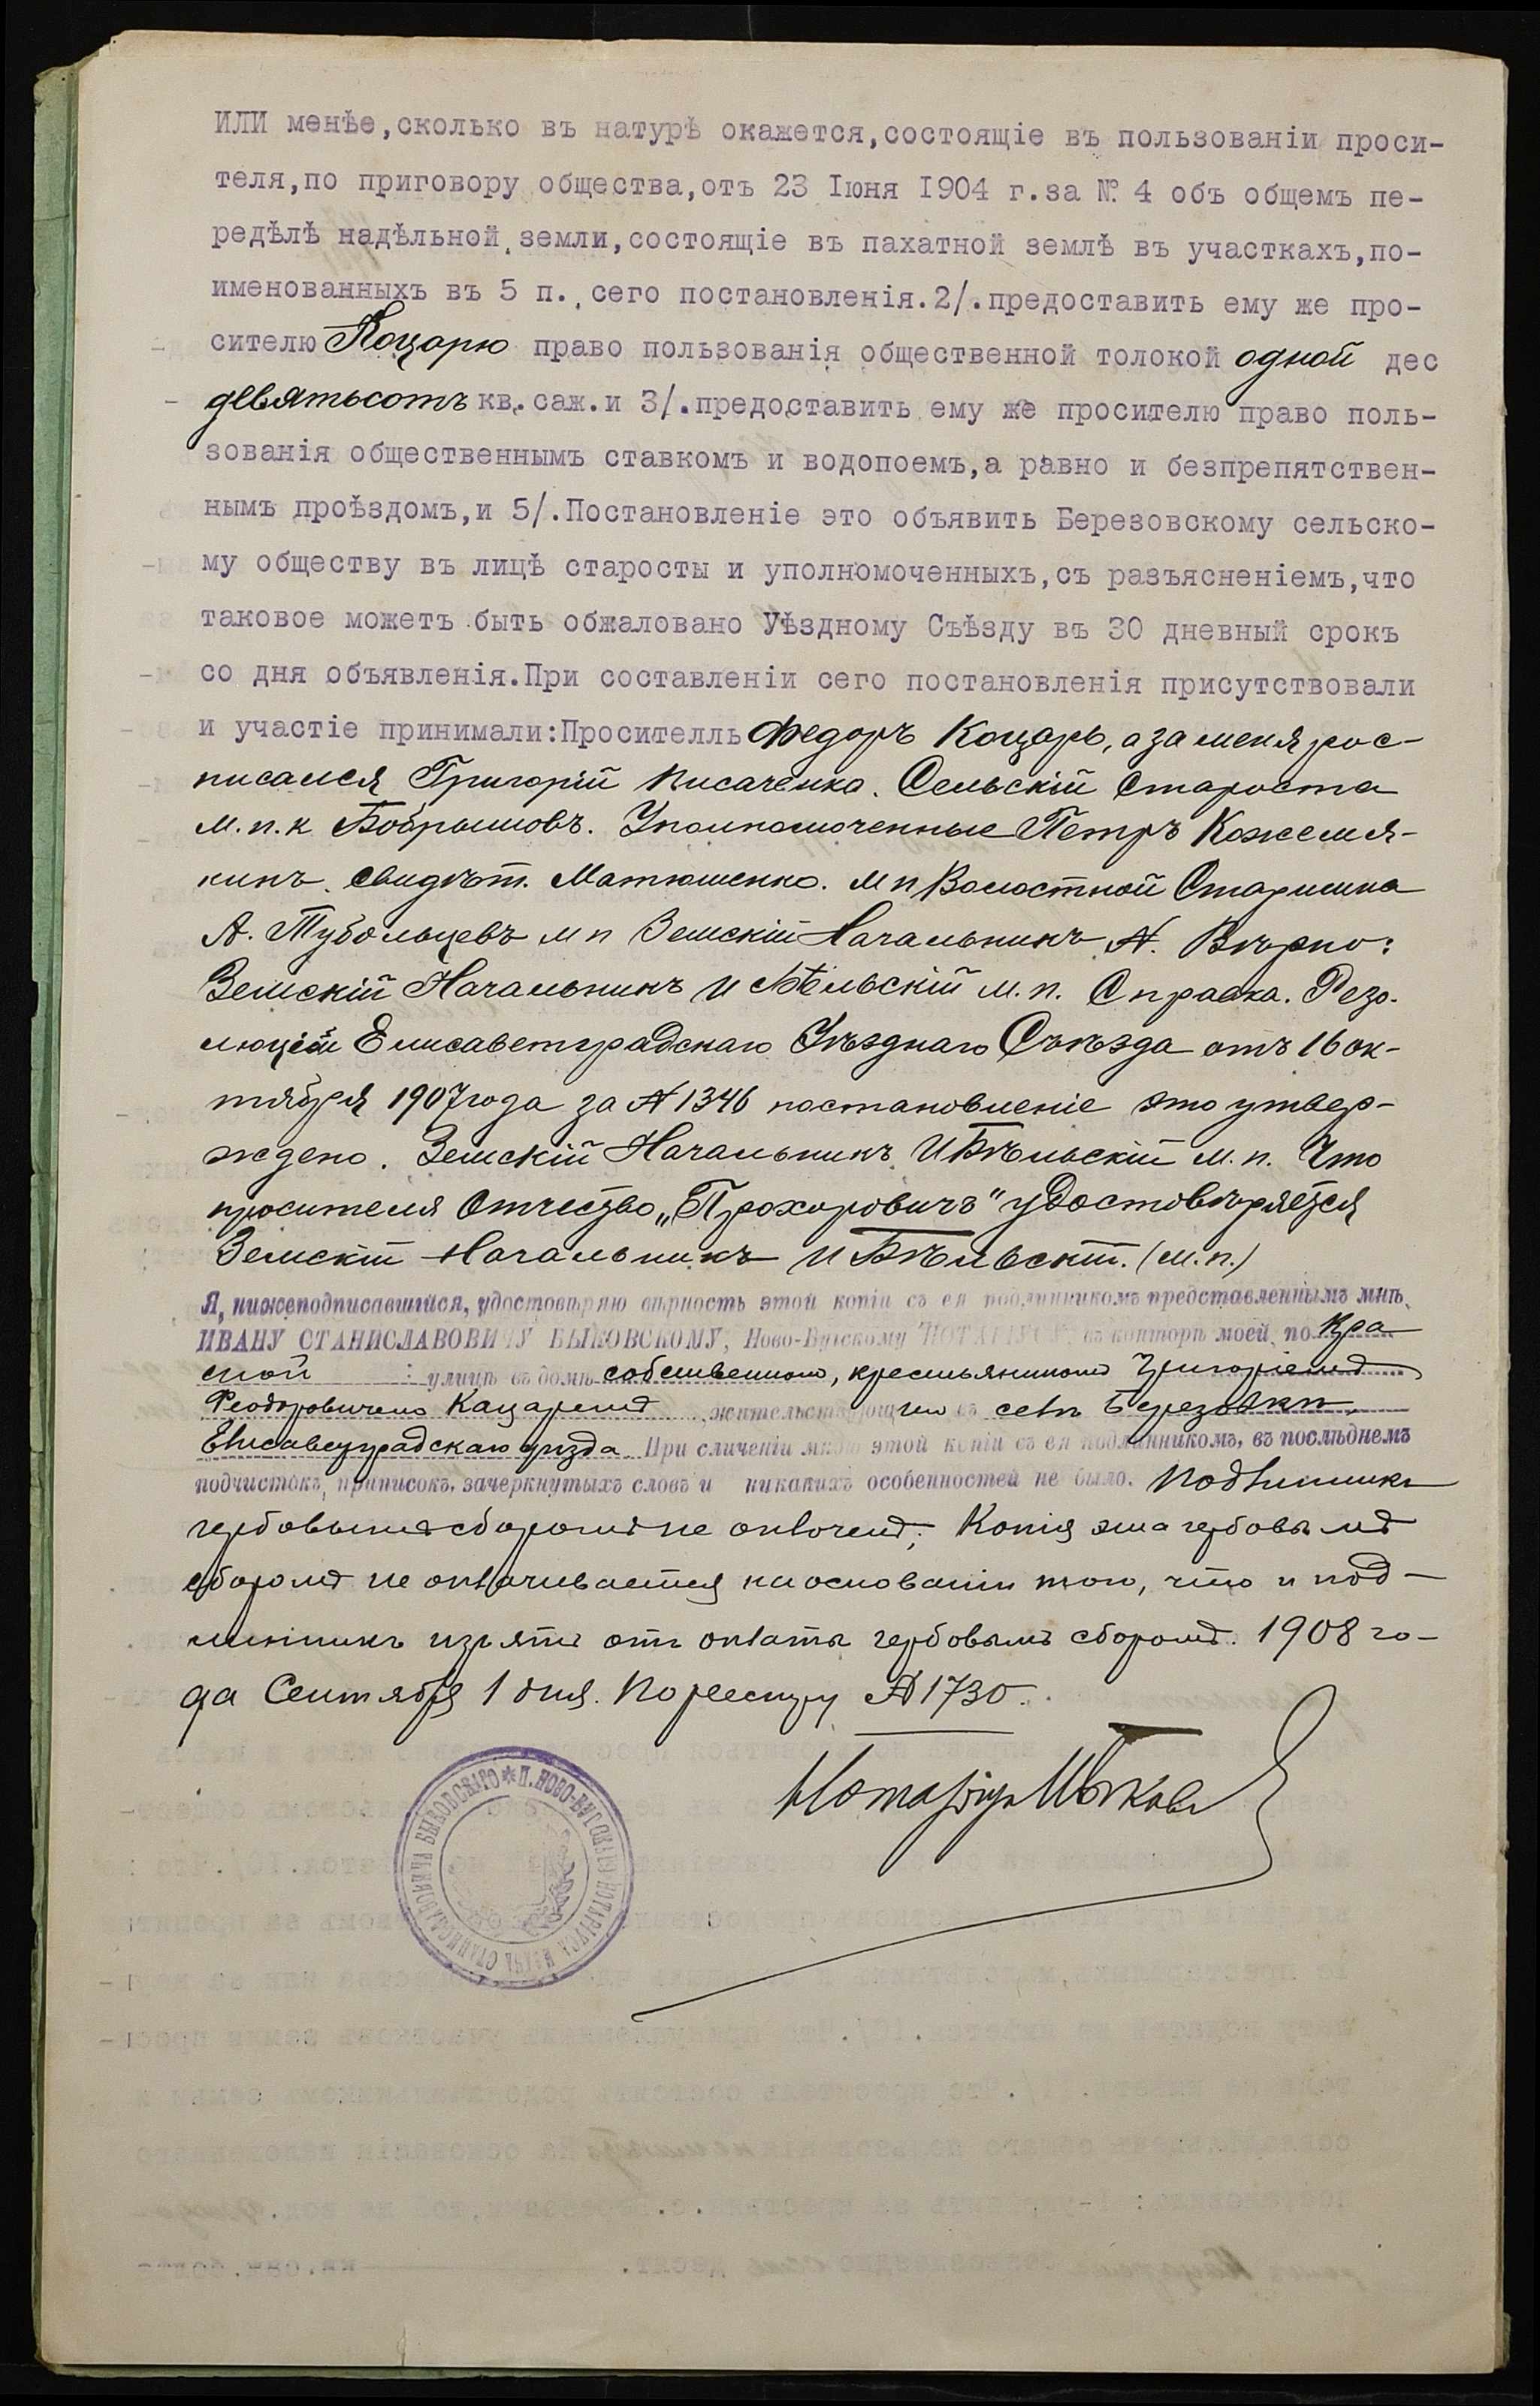 ИЛИ менѣе,сколько въ натурѣ окажется,состоящіе въ пользованіи проси-
теля,по приговору общества,отъ 23 Іюня I904 г.за №. 4 объ общемъ пе-
редѣлѣ надѣльной земли,состоящіе въ пахатной землѣ въ участкахъ,по-
именованныхъ въ 5 п. сего постановленія.2/.предоставить ему же про-
сителю Коцарю право пользованія общественной толокой одной дес
девятьсотъ кв.саж.и 3/.предоставить ему же просителю право поль-
зованія общественнымъ ставкомъ и водопоемъ,а равно и безпрепятствен-
нымъ проѣздомъ,и 5/.Постановленіе это объявить Березовскому сельско-
му обществу въ лицѣ старосты и уполномоченныхъ,съ разъясненіемъ,что
таковое можетъ быть обжаловано Уѣздному Съѣзду въ 30 дневный срокъ
со дня объявленія.При составленіи сего постановленія присутствовали
и участіе принимали:Просителль Федоръ Коцарь, а за меня рос-
писался Григорій Писаченко. Сельскій Староста
м.п.к Уполномоченные Петръ Кожемя-
кинъ. Свидѣт. Матюшенко. М п Волостной Старшина
А. Тубольцевъ м п Земскій Начальникъ Вѣрно:
Земскій Начальникъ И Бѣльскій м.п. Справка. Резо-
люціей Елисаветградскаго Уѣзднаго Съѣзда отъ 16 ок-
тября 1907 года за № 1346 постановленіе это утвер-
ждено. Земскій Начальникъ И Бѣльскій м.п. Что
просителя Отчество „Прохоровичъ" удостовѣряется
Земскій Начальникъ И Бѣльскій. (м.п.)
Я, нижеподписавшійся, удостовѣряю вѣрность этой копіи съ ея подлинникомъ представленнымъ мнѣ,
ИВАНУ СТАНИСЛАВОВИЧУ БЫКОВСКОМУ, Ново-Бугскому НОТАРІУСУ, въ конторѣ моей, по Кра
сной улицѣ въ домѣ собственномъ, крестьяниномъ Григоріемъ
Феодоровичемъ Коцаремъ жительствующимъ въ селѣ Березовкѣ,
Елисаветградскаго уѣзда. При сличеніи мною этой копіи съ ея подлинникомъ, въ послѣднемъ
подчистокъ, приписокъ, зачеркнутыхъ словъ и никакихъ особенностей не было. Подлинникъ
гербовымъ сборомъ не оплоченъ; Копія эта гербовымъ
сборомъ не оплачивается на основаніи того, что и под-
линникъ изъятъ отъ оплаты гербовымъ сборомъ. 1908 го-
да Сентября 1 дня. По реестру № 1730.
Нотаріусъ
* П. НОВО-БУГСКАГО НОТАРІУСА ИВАНА СТАНИСЛАВОВИЧА БЫКОВСКАГО